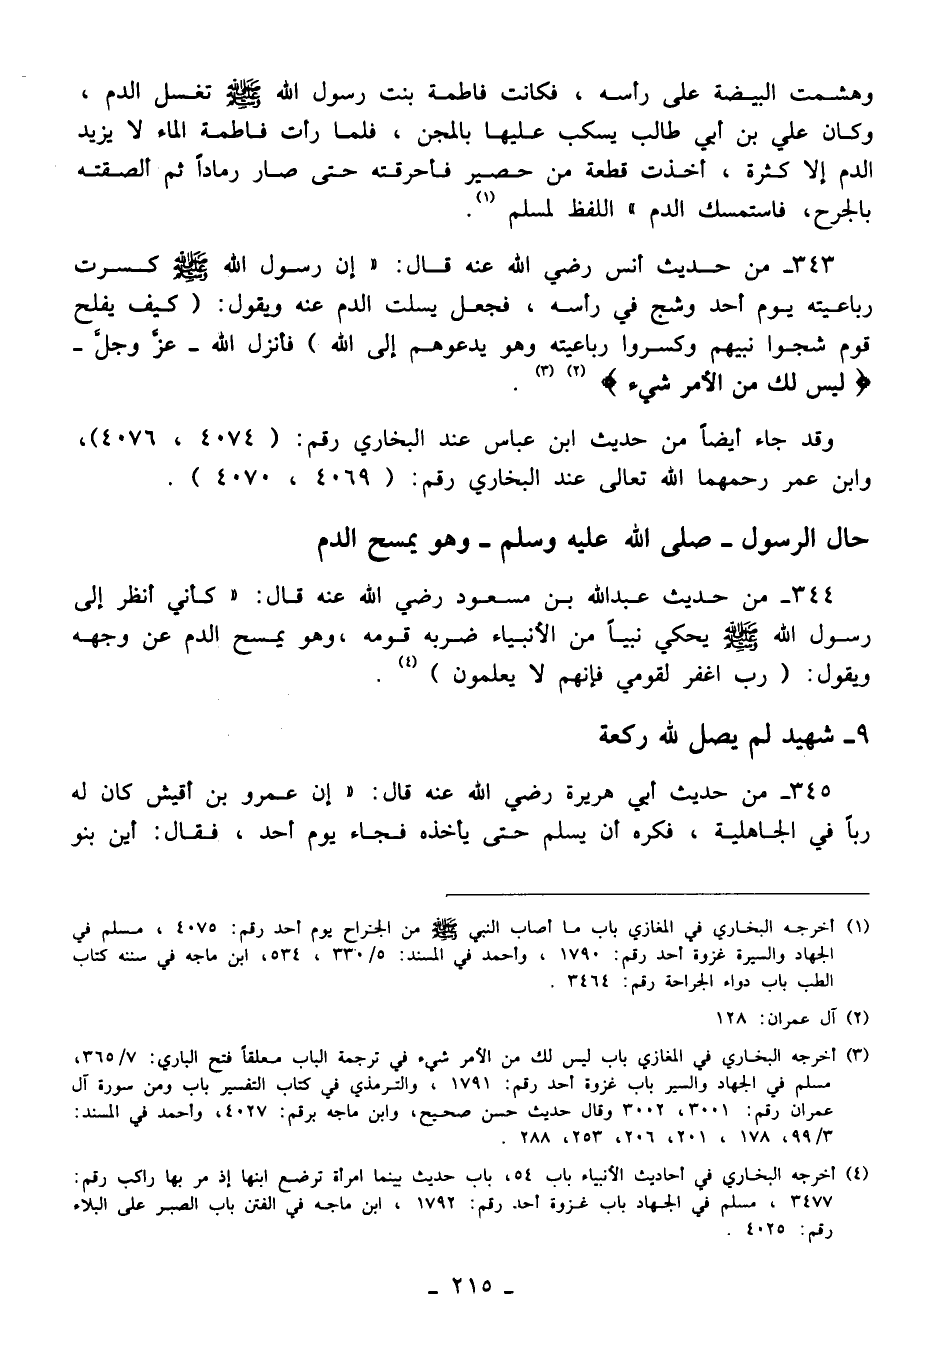 وهشمت البيضة على رأسه ، فكانت فاطمة بنت رسول الله ﷺ تغسل الدم ،
وكان علي بن أبي طالب يسكب عليها بالمجن ، فلما رأت فاطمة الماء لا يزيد
الدم إلا كثرة ، أخذت قطعة من حصير فأحرقته حتى صار رماداً ثم ألصقته
بالجرح، فاستمسك الدم » اللفظ لمسلم (١).
٣٤٣ـ من حديث أنس رضي الله عنه قال: « إن رسول الله ﷺ كسرت
رباعيته يوم أحد وشج في رأسه ، فجعل يسلت الدم عنه ويقول: ( كيف يفلح
قوم شجوا نبيهم وكسروا رباعيته وهو يدعوهم إلى الله ) فأنزل الله ـ عزَّ وجلَّ ـ
﴿ ليس لك من الأمر شيء ﴾ (٢) (٣) .
وقد جاء أيضاً من حديث ابن عباس عند البخاري رقم: ( ٤٠٧٤ ، ٤٠٧٦)،
وابن عمر رحمهما الله تعالى عند البخاري رقم: ( ٤٠٦٩ ، ٤٠٧٠ ) .
حال الرسول ـ صلى الله عليه وسلم ـ وهو يمسح الدم
٣٤٤ـ من حديث عبدالله بن مسعود رضي الله عنه قال: « كأني أنظر إلى
رسول الله ﷺ يحكي نبياً من الأنبياء ضربه قومه ،وهو يمسح الدم عن وجهه
ويقول: ( رب اغفر لقومي فإنهم لا يعلمون ) (٤) .
٩ـ شهيد لم يصل لله ركعة
٣٤٥ـ من حديث أبي هريرة رضي الله عنه قال: « إن عمرو بن أقيش كان له
رباً في الجاهلية ، فكره أن يسلم حتى يأخذه فجاء يوم أحد ، فقال: أين بنو
(١) أخرجه البخاري في المغازي باب ما أصاب النبي ﷺ من الجراح يوم أحد رقم: ٤٠٧٥ ، مسلم في
الجهاد والسيرة غزوة أحد رقم: ١٧٩٠ ، وأحمد في المسند: ٣٣٠/٥ ، ٥٣٤، ابن ماجه في سننه كتاب
الطب باب دواء الجراحة رقم: ٣٤٦٤ .
(٢) آل عمران: ١٢٨
(٣) أخرجه البخاري في المغازي باب ليس لك من الأمر شيء في ترجمة الباب معلقاً فتح الباري: ٣٦٥/٧،
مسلم في الجهاد والسير باب غزوة أحد رقم: ١٧٩١ ، والترمذي في كتاب التفسير باب ومن سورة آل
عمران رقم: ٣٠٠١، ٣٠٠٢ وقال حديث حسن صحيح، وابن ماجه برقم: ٤٠٢٧، وأحمد في المسند:
٩٩/٣، ١٧٨ ، ٢٠١، ٢٠٦، ٢٥٣، ٢٨٨ .
(٤) أخرجه البخاري في أحاديث الأنبياء باب ٥٤، باب حديث بينما امرأة ترضع ابنها إذ مر بها راكب رقم:
٣٤٧٧ ، مسلم في الجهاد باب غزوة أحد رقم: ١٧٩٢ ، ابن ماجه في الفتن باب الصبر على البلاء
رقم: ٤٠٢٥ .
ـ ٢١٥ ـ